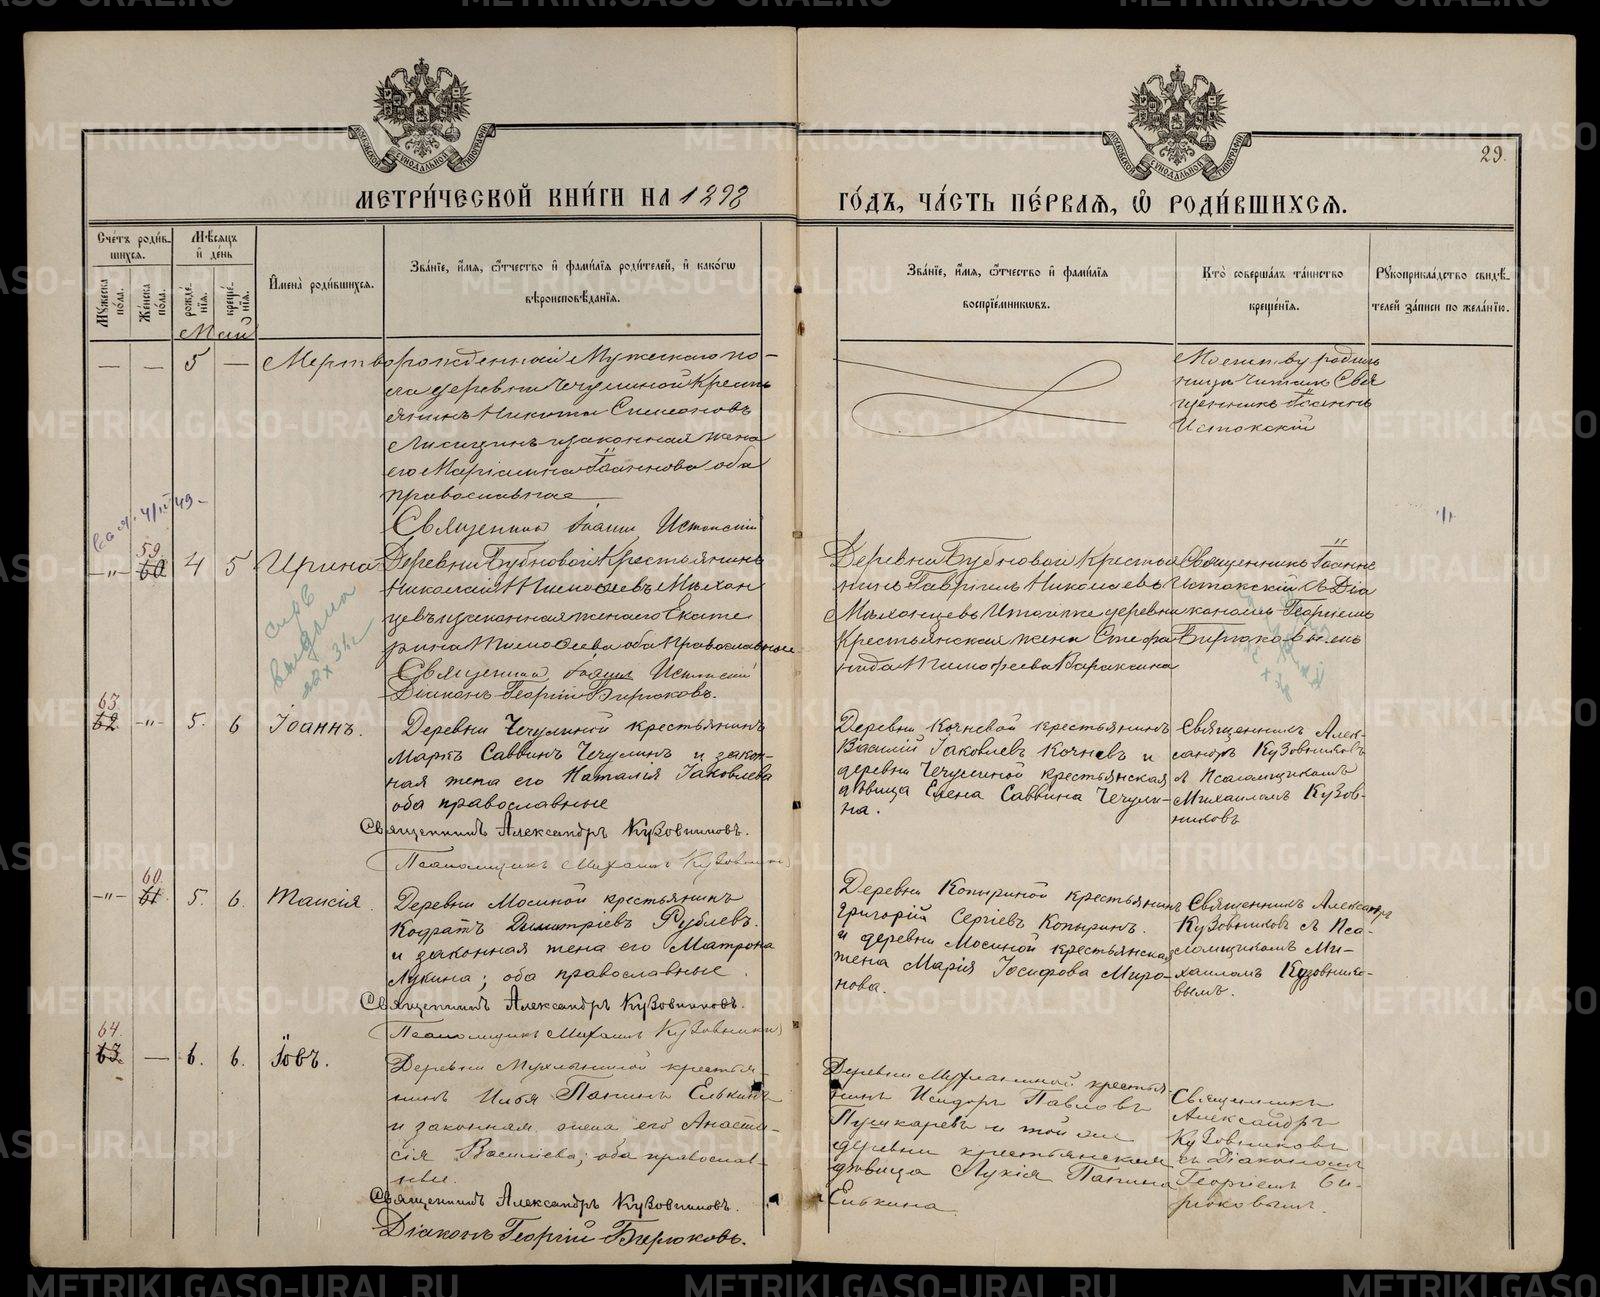 МОСКОВСКОЙ СУНОДАЛЬНОЙ ТИПОГРАФІИ
МОСКОВСКОЙ СУНОДАЛЬНОЙ ТИПОГРАФІИ
29.
МЕТРИ́ЧЕСКОЙ КНИ́ГИ НА 1898
ГО́ДЪ, ЧА́СТЬ ПЕ́РВАЯ, Ѡ РОДИ́ВШИХСЯ.
Сче́тъ роди́в-
шихся.
Мꙋжеска по́ла.
Же́нска по́ла.
Мѣ́сяцъ
и҆ де́нь
рожде́нїя.
креще́нїя.
И҆мена̀ роди́вшихся.
Зва́нїе, и҆́мя, ѻ҆́тчество и҆ фами́лїя роди́телей, и҆ како́гѡ
вѣроисповѣ́данїя.
Зва́нїе, и҆́мя, ѻ҆́тчество и҆ фами́лїя
воспрїе́мниковъ.
Кто̀ соверша́лъ та́инство
креще́нїя.
Рꙋкоприкла́дство свидѣ́-
телей за́писи по жела́нїю.
Май
— — 5 — Мертворожденный Мужескаго по-
ла деревни Чечулиной Кресть
янинъ Никита Симеоновъ
Лисицинъ и законная жена
его Маріамна Іоаннова оба
православные
Священникъ Іоаннъ Истокскій
Молитву родиль
ницѣ читалъ Свя
щенникъ Іоаннъ
Истокскій
59.
-"- 60 4 5 Ирина Деревни Бубновой Крестьянинъ
Николай Тимофеевъ Мѣхон
цевъ и законная жена его Екате
рина Тимофеева оба Православные
Священникъ Іоаннъ Истокскій
Діаконъ Георгій Бирюковъ.
Деревни Бубновой Крестья
нинъ Гавріилъ Николаевъ
Мѣхонцевъ и той же деревни
Крестьянская жена Степа
нида Тимофеева Вараксина
Священникъ Іоаннъ
Истокскій съ Діа
кономъ Георгіемъ
Бирюковымъ
63.
62 -"- 5. 6 Іоаннъ. Деревни Чечулиной крестьянинъ
Маркъ Саввинъ Чечулинъ и закон-
ная жена его Наталія Іаковлева
оба православные
Священникъ Александръ Кузовниковъ.
Псаломщикъ Михаилъ Кузовников
Деревни Кочневой крестьянинъ
Василій Іаковлевъ Кочневъ и
деревни Чечулиной крестьянская
дѣвица Елена Саввина Чечули-
на.
Священникъ Алек-
сандръ Кузовниковъ
съ Псаломщикомъ
Михаиломъ Кузов-
никовъ
60.
-"- 61 5. 6. Таисія. Деревни Мосиной крестьянинъ
Кодратъ Димитріевъ Рублевъ.
и законная жена его Матрона
Лукина; оба православные.
Священникъ Александръ Кузовниковъ.
Псаломщикъ Михаилъ Кузовников
Деревни Копыриной крестьянинъ
Григорій Сергіевъ Копыринъ.
и деревни Мосиной крестьянская
жена Марія Іосифова Миро-
нова.
Священникъ Александръ
Кузовниковъ съ Пса-
ломщикомъ Ми-
хаиломъ Кузовнико-
вымъ.
64.
63. — 6. 6. Іовъ. Деревни крестья-
нинъ Илья Папинъ Елькинъ
и законная жена его Анаста-
сія Васильева; оба православ-
ные.
Священникъ Александръ Кузовниковъ.
Діаконъ Георгій Бирюковъ.
Деревни крестья-
нинъ Исидоръ Павловъ
Пушкаревъ и той же
деревни крестьянская
дѣвица Лукія Папина
Елькина
Священникъ
Александръ
Кузовниковъ
съ Діакономъ
Георгіемъ Би-
рюковымъ.
METRIKI.GASO-URAL.RU